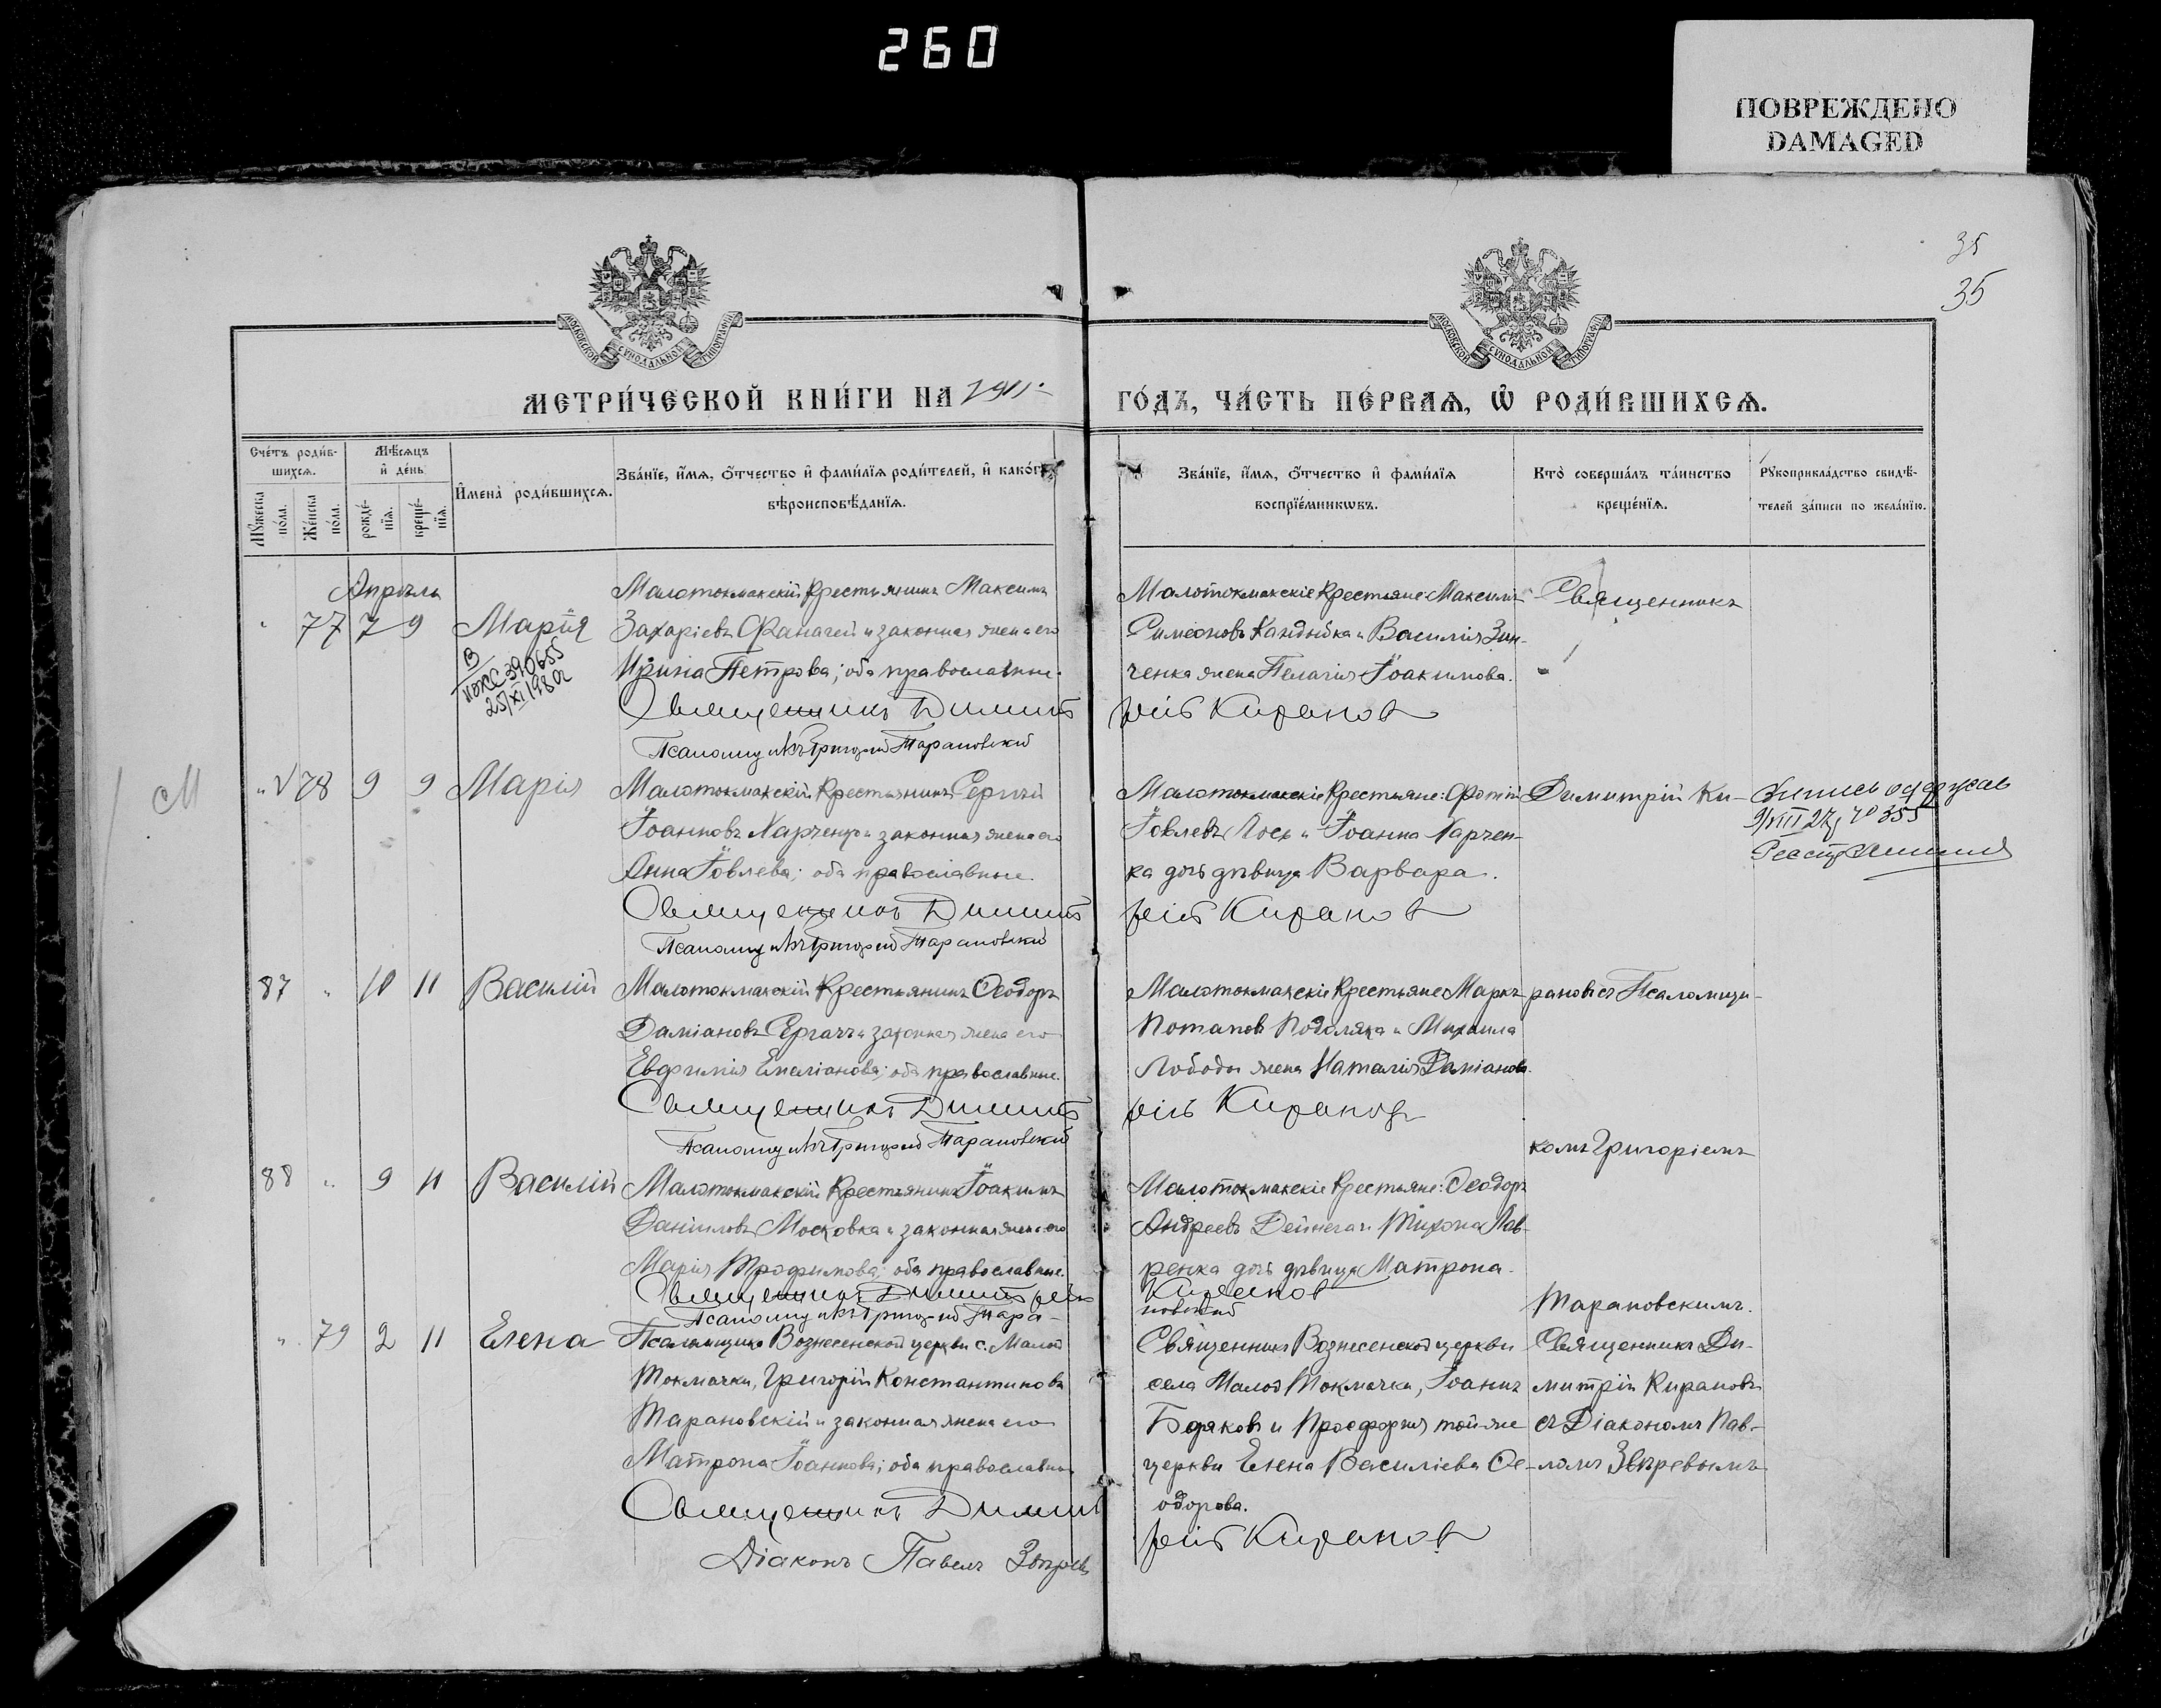 260
ПОВРЕЖДЕНО
DAMAGED
35
35
МОСКОВСКОЙ СѴНОДАЛЬНОЙ ТИПОГРАФІИ
МОСКОВСКОЙ СѴНОДАЛЬНОЙ ТИПОГРАФІИ
МЕТРИ́ЧЕСКОЙ КНИ́ГИ НА 1911
ГО́ДЪ, ЧА́СТЬ ПЕ́РВАѦ, Ѡ҆ РОДИ́ВШИХСѦ.
Сче́тъ роди́в-
шихсѧ.
Мꙋ́жеска по́ла.
Же́нска по́ла.
Мѣ́сѧцъ
и҆ де́нь
рожде́-
нїѧ.
креще́-
нїѧ.
И҆мена̀ роди́вшихсѧ.
Зва́нїе, и҆́мѧ, ѻ҆́тчество и҆ фами́лїѧ роди́телей, и҆ како́гѡ
вѣроисповѣ́данїѧ.
Зва́нїе, и҆́мѧ, ѻ҆́тчество и҆ фами́лїѧ
воспрїе́мникѡвъ.
Кто̀ соверша́лъ та́инство
креще́нїѧ.
Рꙋкоприкла́дство свидѣ́-
телей за́писи по жела́нїю.
Апрѣль
" 77 7 9 Марія
В
ИЖС 390655
25/XI 198
Малотокмакскій крестьянинъ Максимъ
Захаріевъ Фаначей и законная жена его
Ирина Петрова; оба православные.
Священникъ Димит
Псаломщикъ Григорій Тарановскій
Малотокмакскіе крестьяне: Максимъ
Симеоновъ Кандыбка и Василія Зин-
ченка жена Пелагія Іоакимова.
рій Киранов
Священникъ
М
" V 78 9 9 Марія
Малотокмакскій крестьянинъ Сергій
Іоанновъ Харченко и законная жена его
Анна Іовлева; оба православные.
Священникъ Димит
Псаломщикъ Григорій Тарановскій
Малотокмакскіе крестьяне: Фотій
Іовлевъ Лось и Іоанна Харчен-
ка дочь дѣвица Варвара.
рій Киранов
Димитрій Ки-
9/VIII 27 № 355
87 " 10 11 Василій
Малотокмакскій крестьянинъ Ѳеодоръ
Даміановъ Сергачъ и законная жена его
Евфимія Емеліанова; оба православные.
Священникъ Димит
Псаломщикъ Григорій Тарановскій
Малотокмакскіе крестьяне Маркъ
Потаповъ Подоляка и Михаила
Лободы жена Наталія Даміанова.
рій Киранов
рановъ съ Псаломщи-
комъ Григоріемъ
88 " 9 11 Василій
Малотокмакскій крестьянинъ Іоакимъ
Даніиловъ Московка и законная жена его
Марія Трофимова; оба православные.
Священникъ Димитрій
Псаломщикъ Григорій Тара-
Малотокмакскіе крестьяне: Ѳеодоръ
Андреевъ Дейнега и Тихона Лав-
ренка дочь дѣвица Матрона.
Киранов
новскій
Тарановскимъ.
" 79 2 11 Елена
Псаломщикъ Вознесенской церкви с. Малой
Токмачки, Григорій Константиновъ
Тарановскій и законная жена его
Матрона Іоаннова; оба православные
Священникъ Димит
Діаконъ Павелъ Звѣревъ
Священникъ Вознесенской церкви
села Малой Токмачки, Іоаннъ
Боряковъ и Просфорня той-же
церкви Елена Василіева Ѳе-
одорова.
рій Киранов
Священникъ Ди-
митрій Кирановъ
съ Діакономъ Пав-
ломъ Звѣревымъ